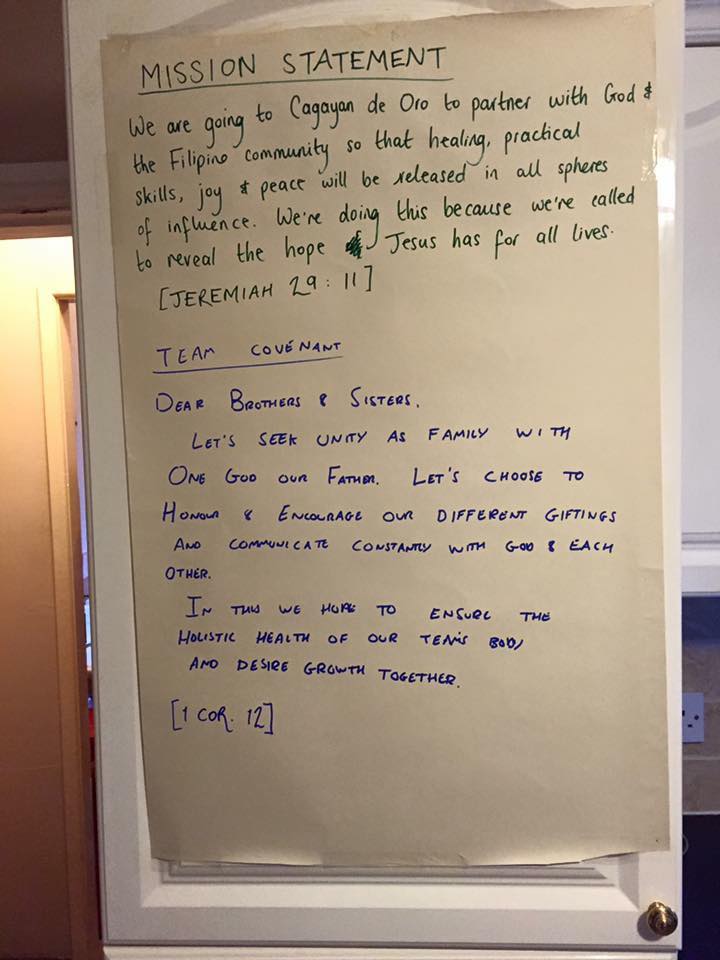 MISSION STATEMENT
We are going to Cagayan de Oro to partner with God &
the Filipino community so that healing, practical
skills, joy & peace will be released in all spheres
of influence. We're doing this because we're called
to reveal the hope Jesus has for all lives.
[JEREMIAH 29:11]
TEAM COVENANT
DEAR BROTHERS & SISTERS,
LET'S SEEK UNITY AS FAMILY WITH
ONE GOD OUR FATHER. LET'S CHOOSE TO
HONOUR & ENCOURAGE OUR DIFFERENT GIFTINGS
AND COMMUNICATE CONSTANTLY WITH GOD & EACH
OTHER.
IN THIS WE HOPE TO ENSURE THE
HOLISTIC HEALTH OF OUR TEAM'S BODY
AND DESIRE GROWTH TOGETHER.
[1 COR. 12]